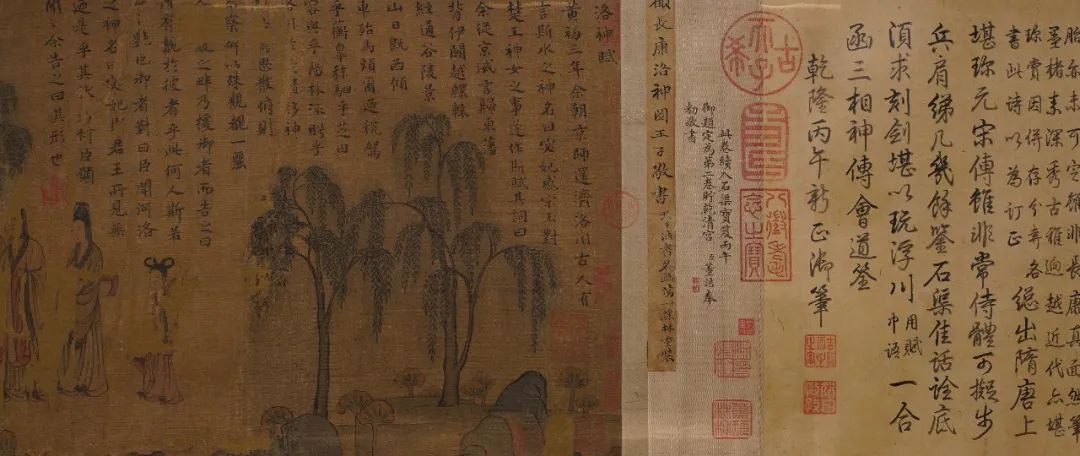 胎亦未可定雖非長康真面然筆
墨楮素深秀古雅迥越近代亦堪
珎賞因併存分弆各
書此詩以為訂正
總出隋唐上
堪珎元宋傳雖非常侍體可擬步
兵肩綈几幾餘鑒石渠佳話詮底
須求刻劍堪以玩浮川用賦中語一合
函三相神傳會道筌
乾隆丙午新正御筆
古稀天子
壽
八徵耄念之寶
此卷續入石渠寶笈丙午
御題定為第二卷貯乾清宮 臣董誥奉
敕敬書
顧長康洛神圖王子敬書 天下法書名畫第一
洛神賦
黃初三年余朝京師還濟洛川古人有
言斯水之神名曰宓妃感宋玉對
楚王神女之事遂作斯賦其詞曰
余從京域言歸東藩
背伊闕越轘轅
經通谷陵景
山日既西傾
車殆馬煩爾迺稅駕
乎蘅臯秣駟乎芝田
容與乎陽林流眄乎
移神
思散俯則
察仰以殊觀覩一麗
之畔乃援御者而告之曰
有覿於彼者乎此何人斯若
艷也御者對曰臣聞河洛
之神名曰宓妃則君王所見無
迺是乎其狀若何臣願
聞之余告之曰其形也